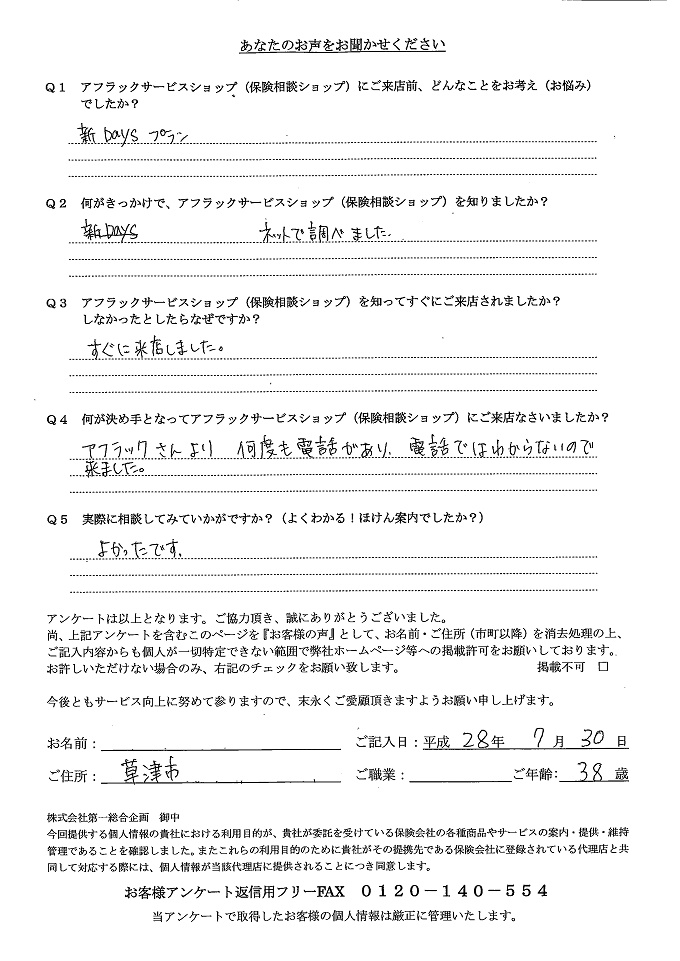 あなたのお声をお聞かせください
Q1 アフラックサービスショップ（保険相談ショップ）にご来店前、どんなことをお考え（お悩み）
でしたか？
新Days プラン
Q2 何がきっかけで、アフラックサービスショップ（保険相談ショップ）を知りましたか？
新DAYS ネットで調べました.
Q3 アフラックサービスショップ（保険相談ショップ）を知ってすぐにご来店されましたか？
しなかったとしたらなぜですか？
すぐに来店しました。
Q4 何が決め手となってアフラックサービスショップ（保険相談ショップ）にご来店なさいましたか？
アフラックさんより 何度も電話があり、電話ではわからないので
来ました。
Q5 実際に相談してみていかがですか？（よくわかる！ほけん案内でしたか？）
よかったです.
アンケートは以上となります。ご協力頂き、誠にありがとうございました。
尚、上記アンケートを含むこのページを『お客様の声』として、お名前・ご住所（市町以降）を消去処理の上、
ご記入内容からも個人が一切特定できない範囲で弊社ホームページ等への掲載許可をお願いしております。
お許しいただけない場合のみ、右記のチェックをお願い致します。 掲載不可 □
今後ともサービス向上に努めて参りますので、末永くご愛顧頂きますようお願い申し上げます。
お名前： ご記入日：平成 28年 7月 30日
ご住所： 草津市 ご職業： ご年齢： 38歳
株式会社第一総合企画 御中
今回提供する個人情報の貴社における利用目的が、貴社が委託を受けている保険会社の各種商品やサービスの案内・提供・維持
管理であることを確認しました。またこれらの利用目的のために貴社がその提携先である保険会社に登録されている代理店と共
同して対応する際には、個人情報が当該代理店に提供されることにつき同意します。
お客様アンケート返信用フリーFAX 0120－140－554
当アンケートで取得したお客様の個人情報は厳正に管理いたします。